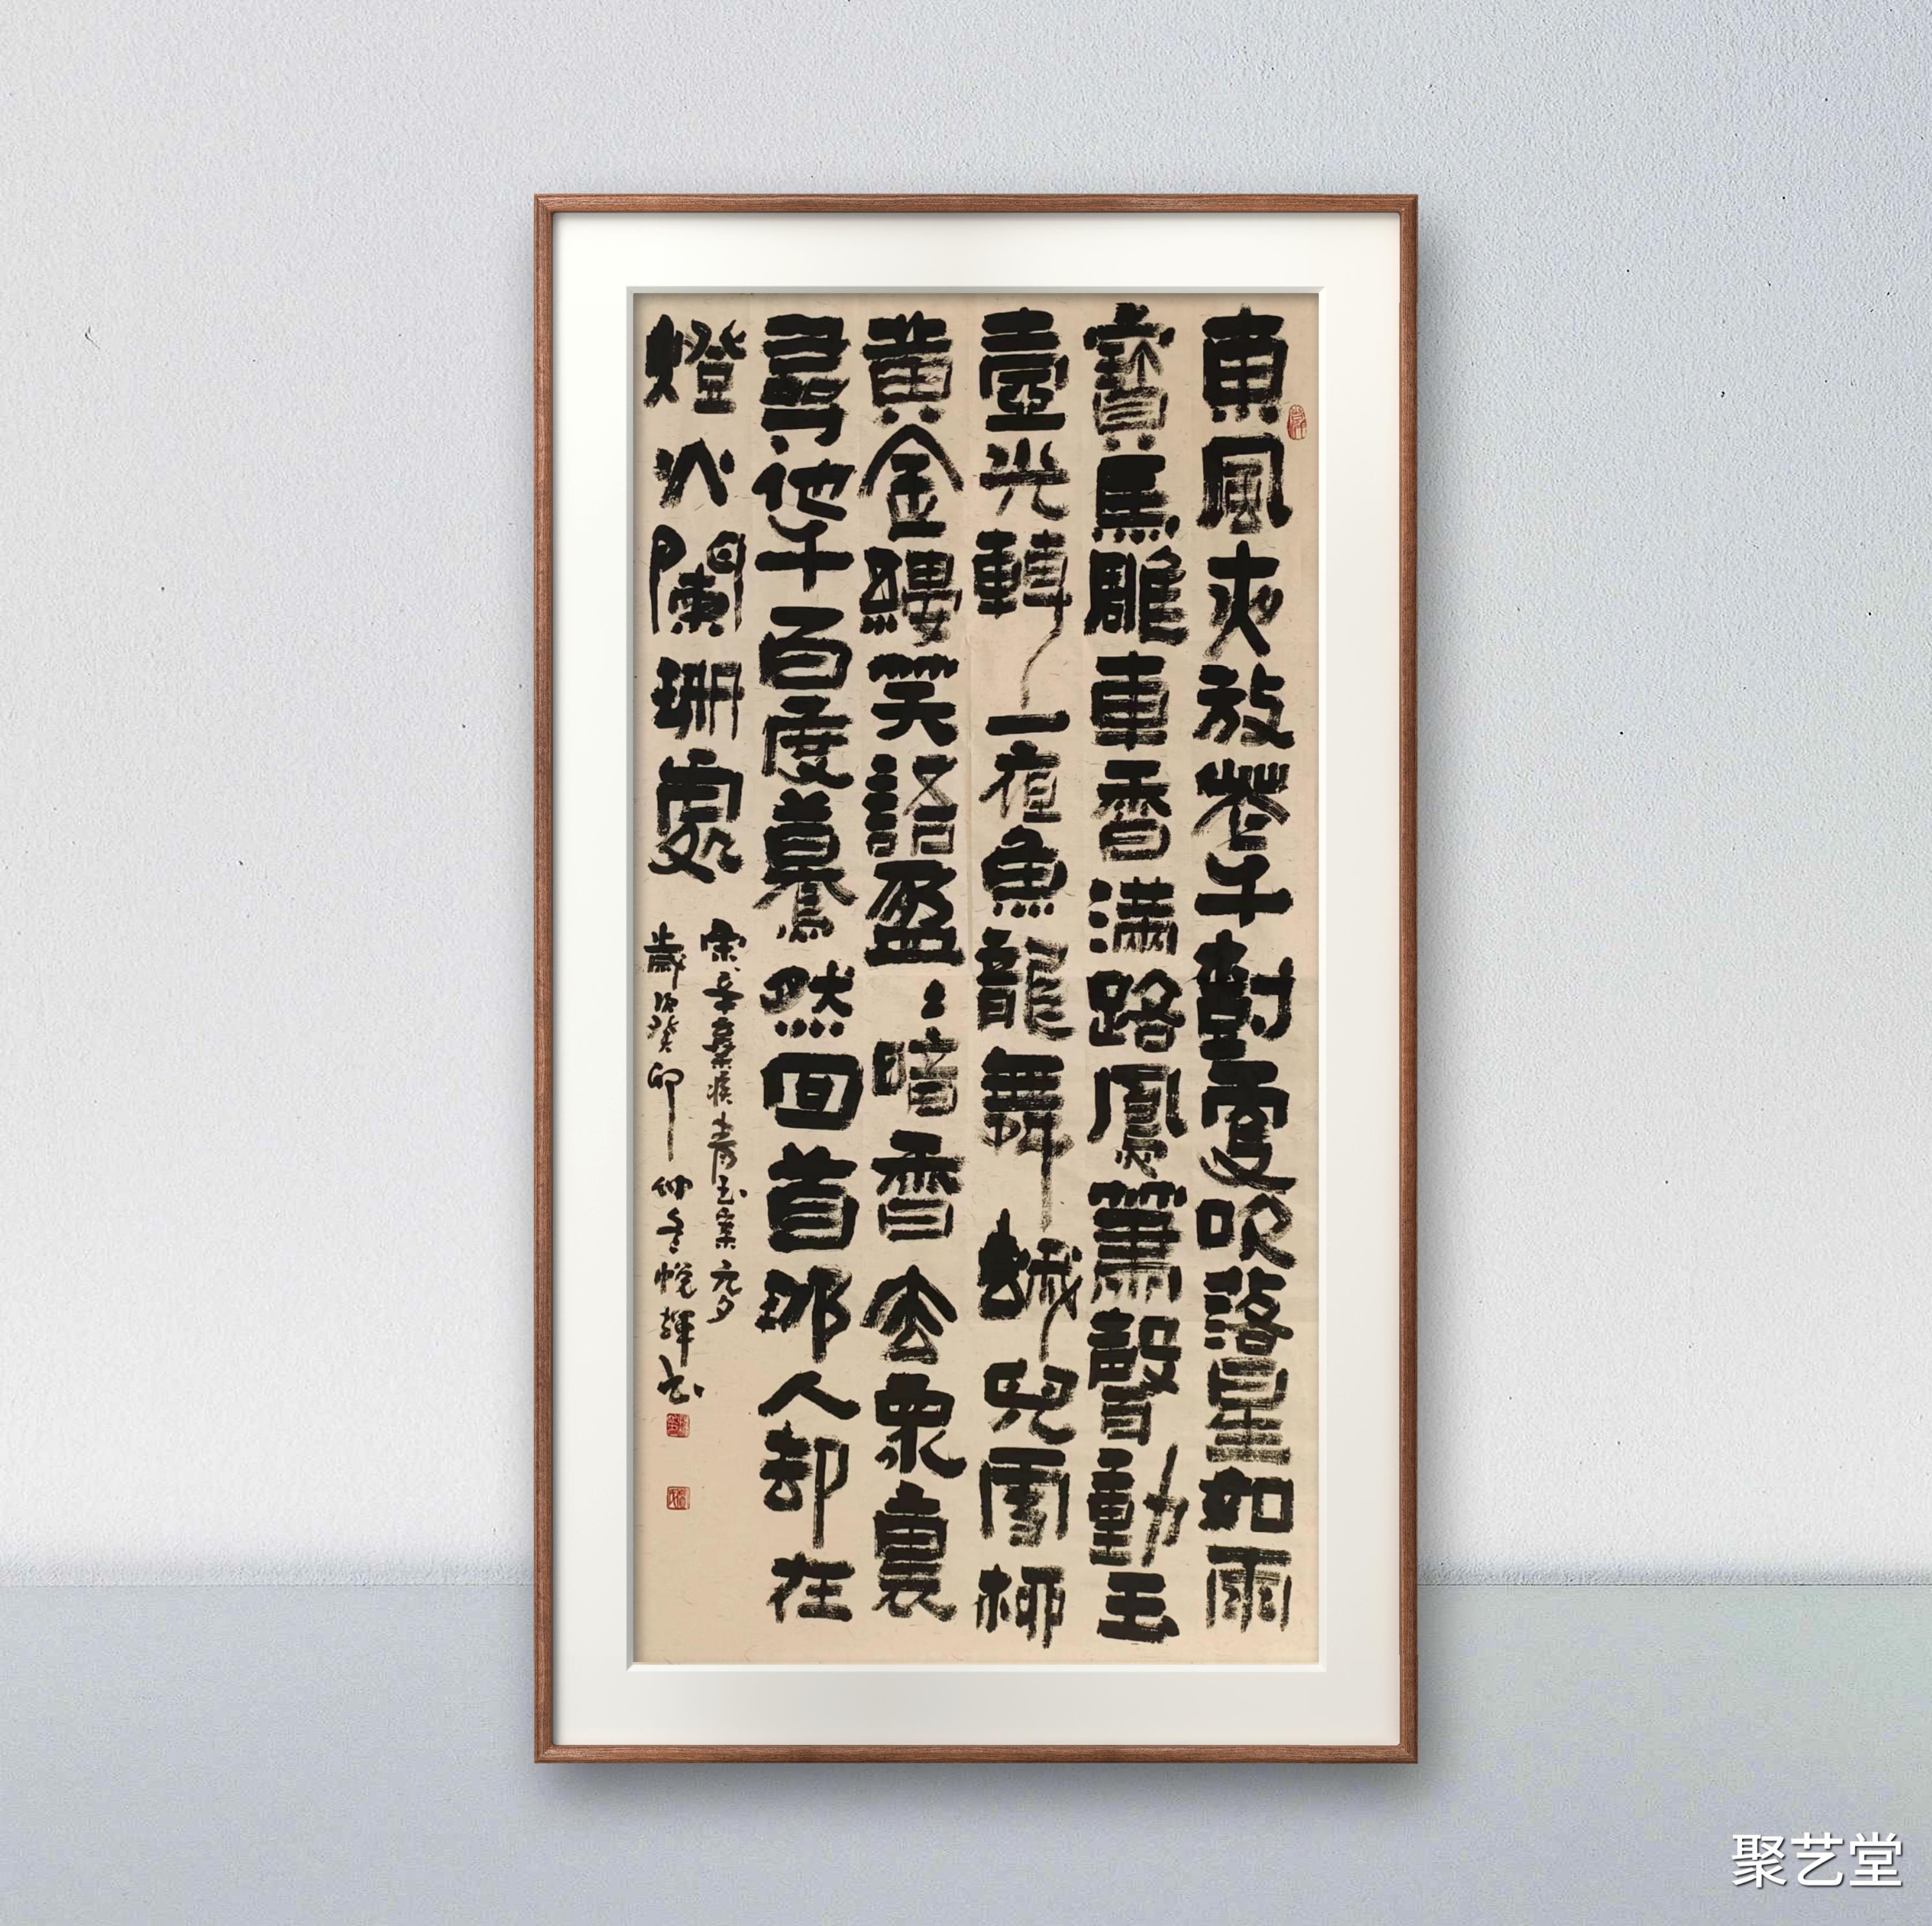 東風夜放花千樹更吹落星如雨
寶馬雕車香滿路鳳簫聲動玉
壺光轉一夜魚龍舞蛾兒雪柳
黄金縷笑語盈〻暗香去衆裏
尋他千百度驀然回首那人却在
燈火闌珊處
宋辛棄疾青玉案元夕
歲次癸卯仲冬悦輝书
聚艺堂